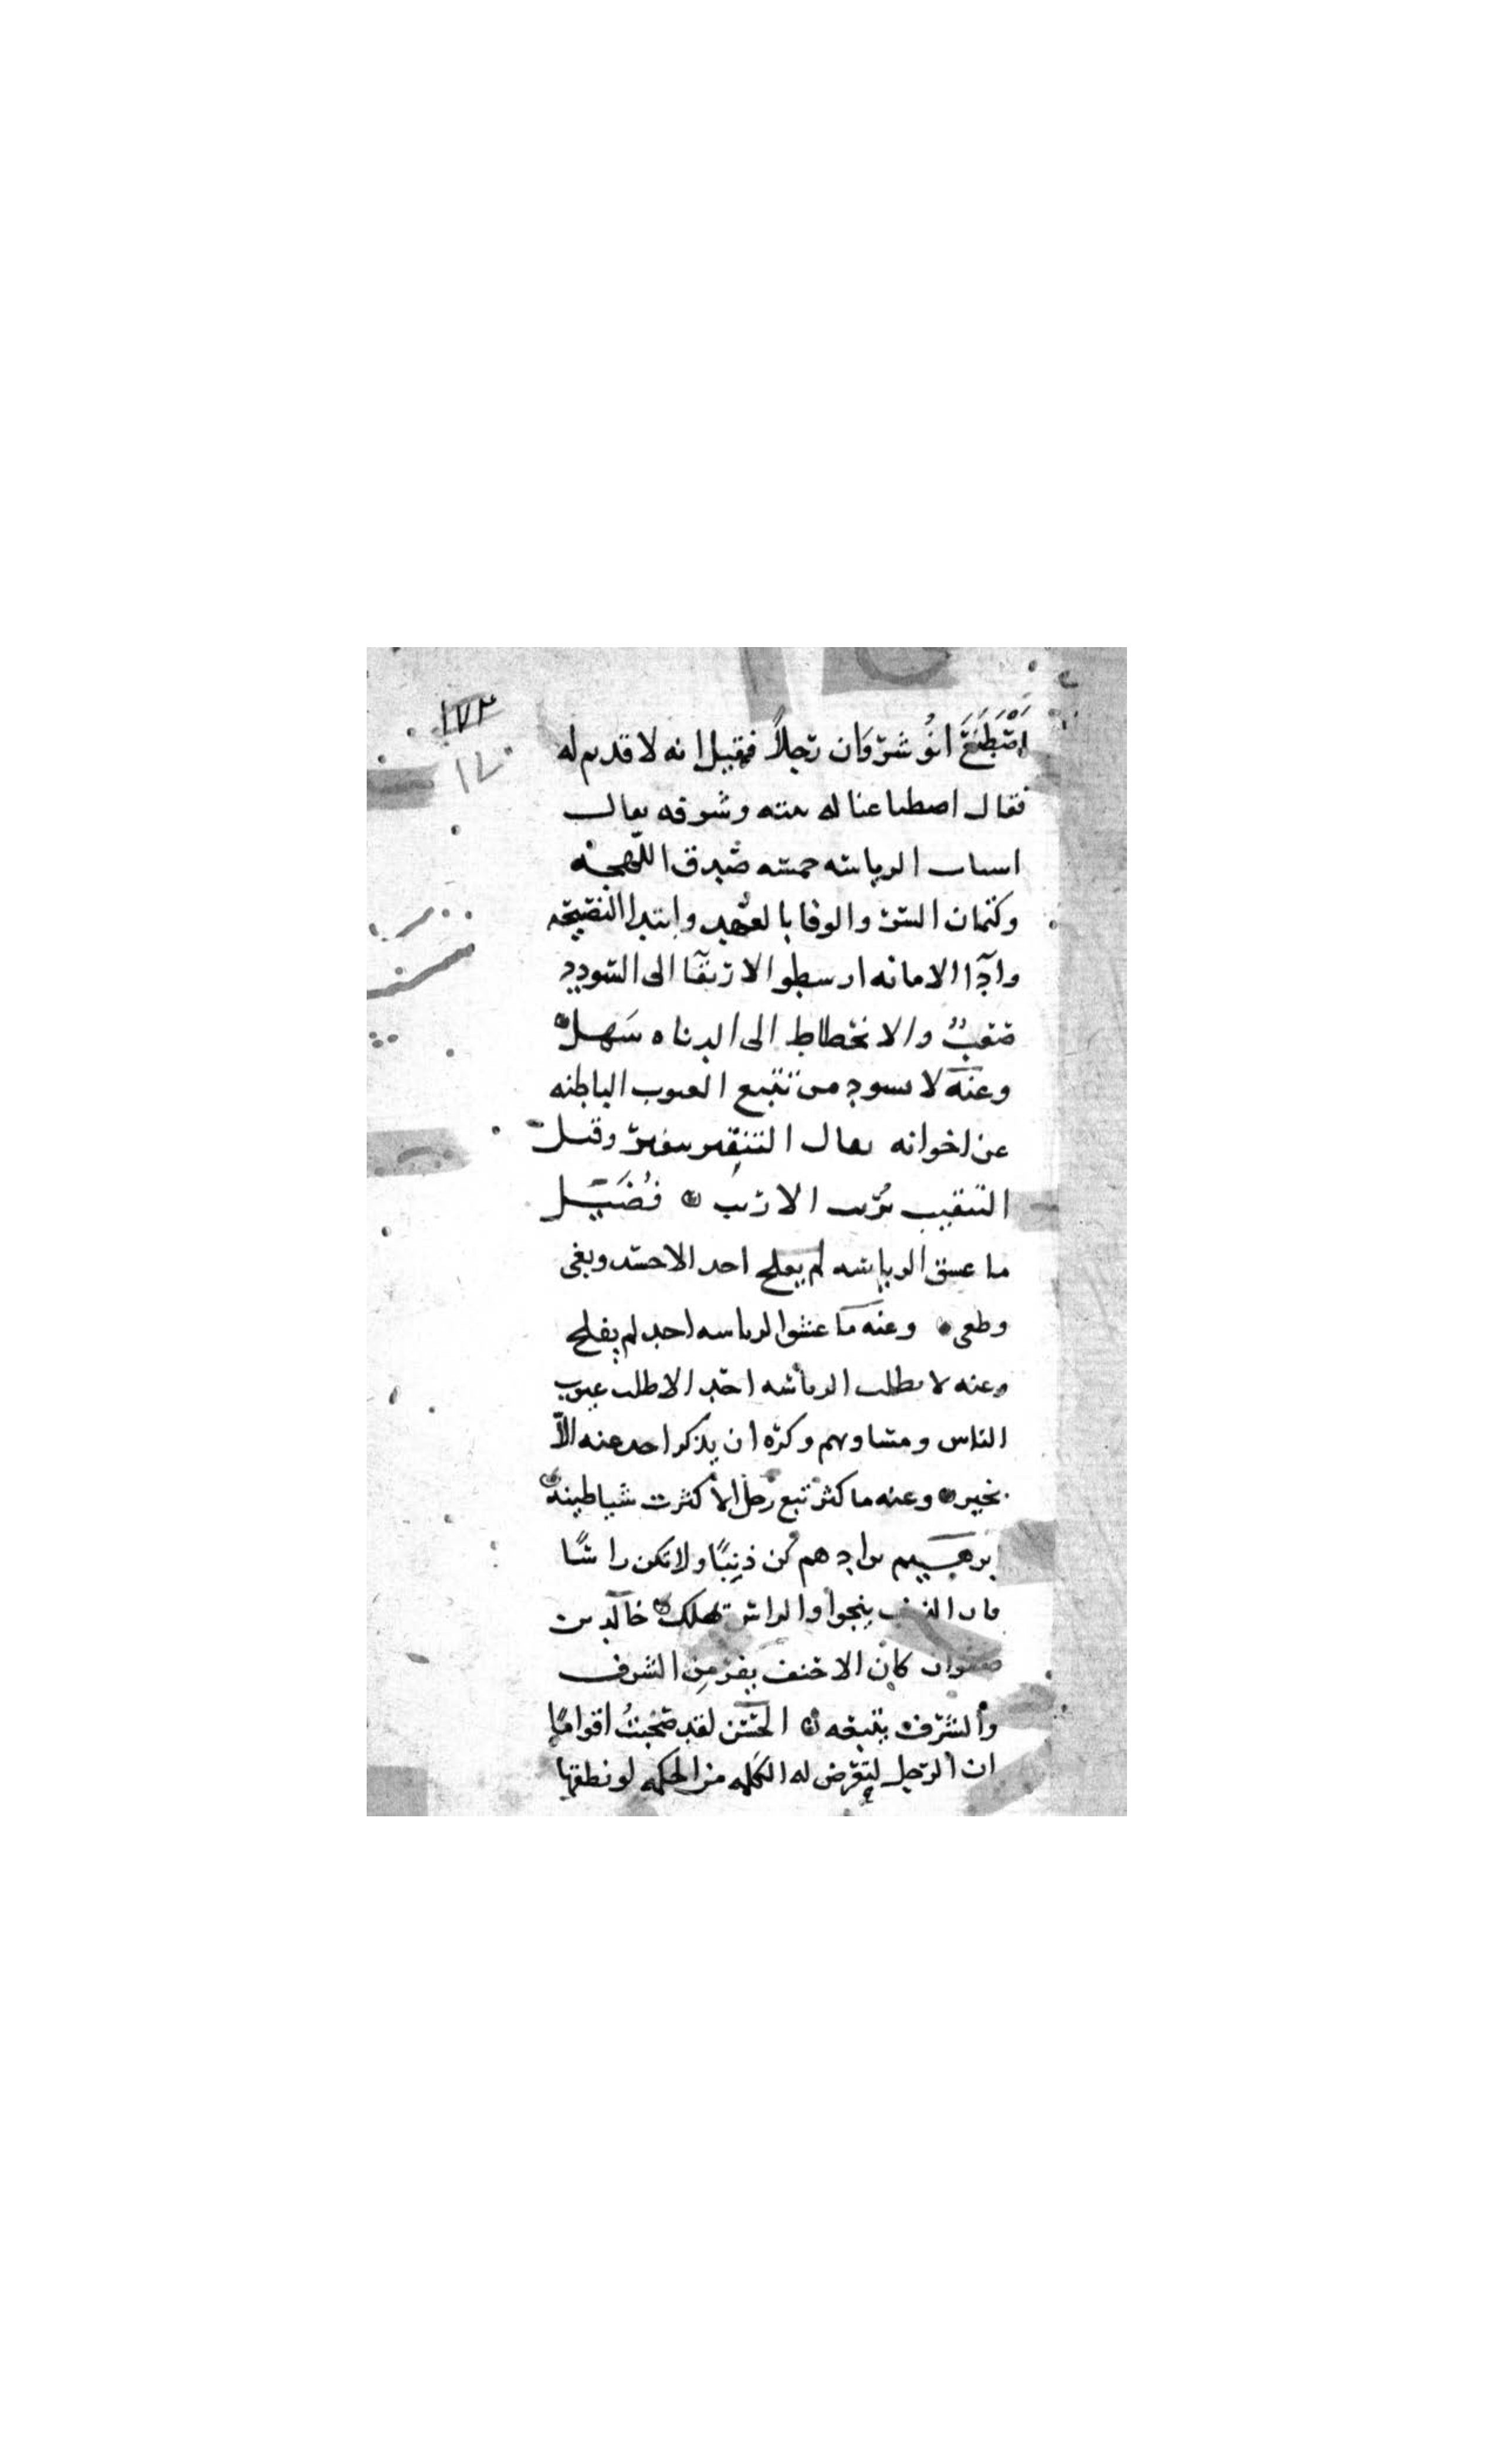 ١٧٣
١٧٠
اصْطَنَعَ انُوشروَان رجلاً فقيل انه لا قديم له
فقال اصطناعنا له بيته وشرفه يقال
اسباب الرياسه خمسه صدق اللهجه
وكتمان السر والوفا بالعهد وابتدا النصيحه
وادآ الامانه ارسطو الارتقآ الى السودد
صعبٌ والانحطاط الى الدناه سَهل
وعنه لا يسود من تتبع العيوب الباطنه
عن اخوانه يقال التنقير وقيل
التنقيب الاريب فُضَيل
ما عشق الرياسه لم يفلح احد الا حسد وبغى
وطغى وعنه ما عشق الرياسه احد لم يفلح
وعنه لا يطلب الرياسه احد الا طلب عيوب
الناس ومساويهم وكره ان يذكر احد عنه الاّ
بخير وعنه ما كثر تبع رجل الا كثرت شياطينه
ابرهيم بن ادهم كن ذنبًا ولا تكن راسًا
فان الذنب ينجوا والراس تهلك خالد بن
صفوان كان الاحنف يفر من الشرف
والشرف يتبعه الحسن لقد صحبتُ اقوامًا
ان الرجل لتعرض له الكلمه من الحكمه لو نطق بها